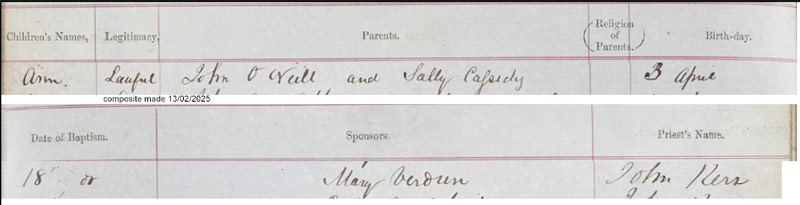 Children's Names, Legitimacy, Parents. Religion of Parents. Birth-day.
Ann. Lawful John O Neill and Sally Cassidy 3 April
composite made 13/02/2025
Date of Baptism. Sponsors. Priest's Name.
18 do Mary Verdun John Kerr